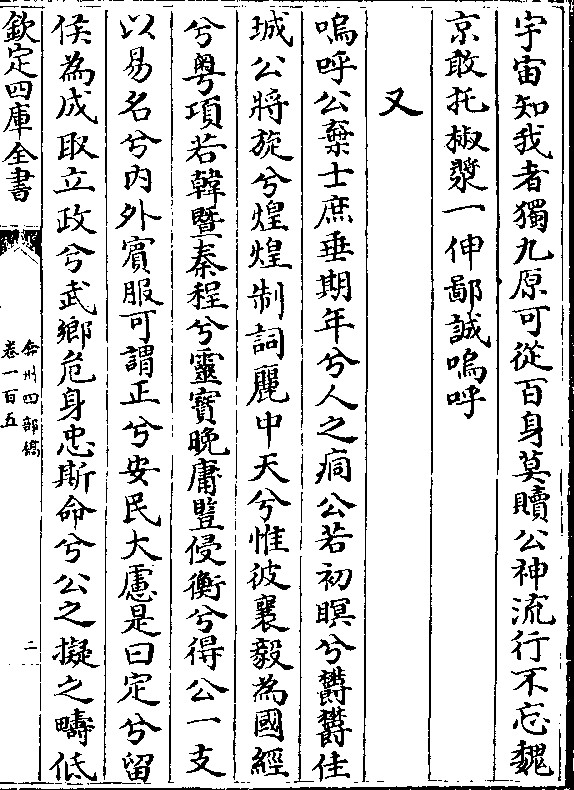 宇宙知我者獨九原可從百身莫贖公神流行不忘魏
京敢托椒漿一伸鄙誠嗚呼
又
嗚呼公棄士庶垂期年兮人之痌公若初暝兮欝欝佳
城公將旋兮煌煌制詞麗中天兮惟彼襄毅為國經
兮粤項若韓暨秦程兮靈寳晚庸豎侵衡兮得公一支
以易名兮内外賓服可謂正兮安民大慮是曰定兮留
侯為成取立政兮武鄉危身忠斯命兮公之擬之疇低
欽定四庫全書
弇州四部稿
卷一百五
二